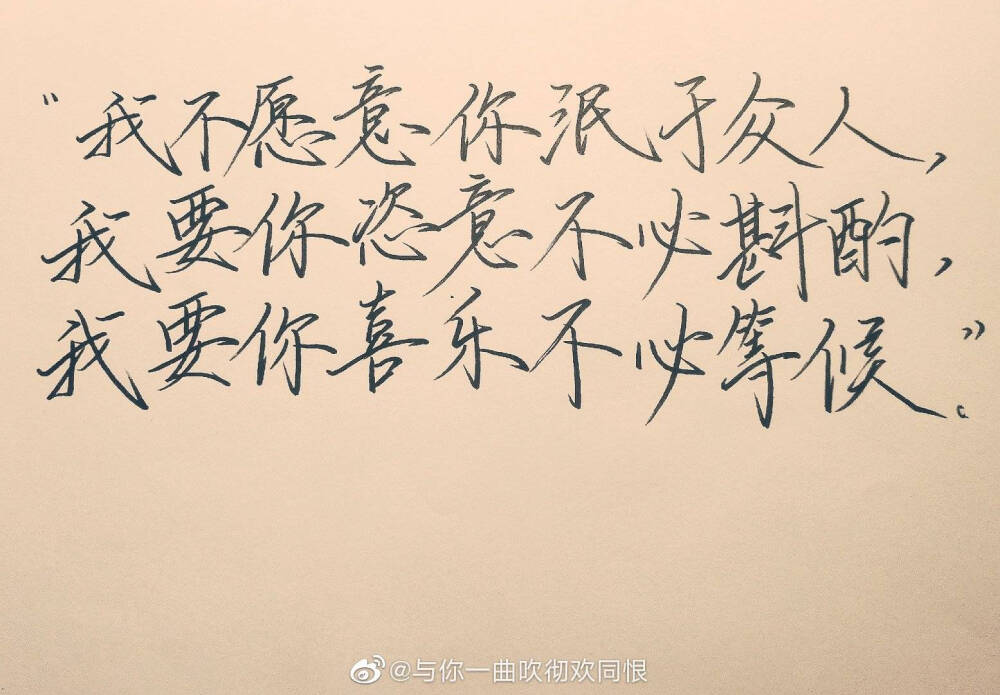 “我不愿意你泯于众人，
我要你恣意不必斟酌，
我要你喜乐不必等候。”
@与你一曲吹彻欢同恨